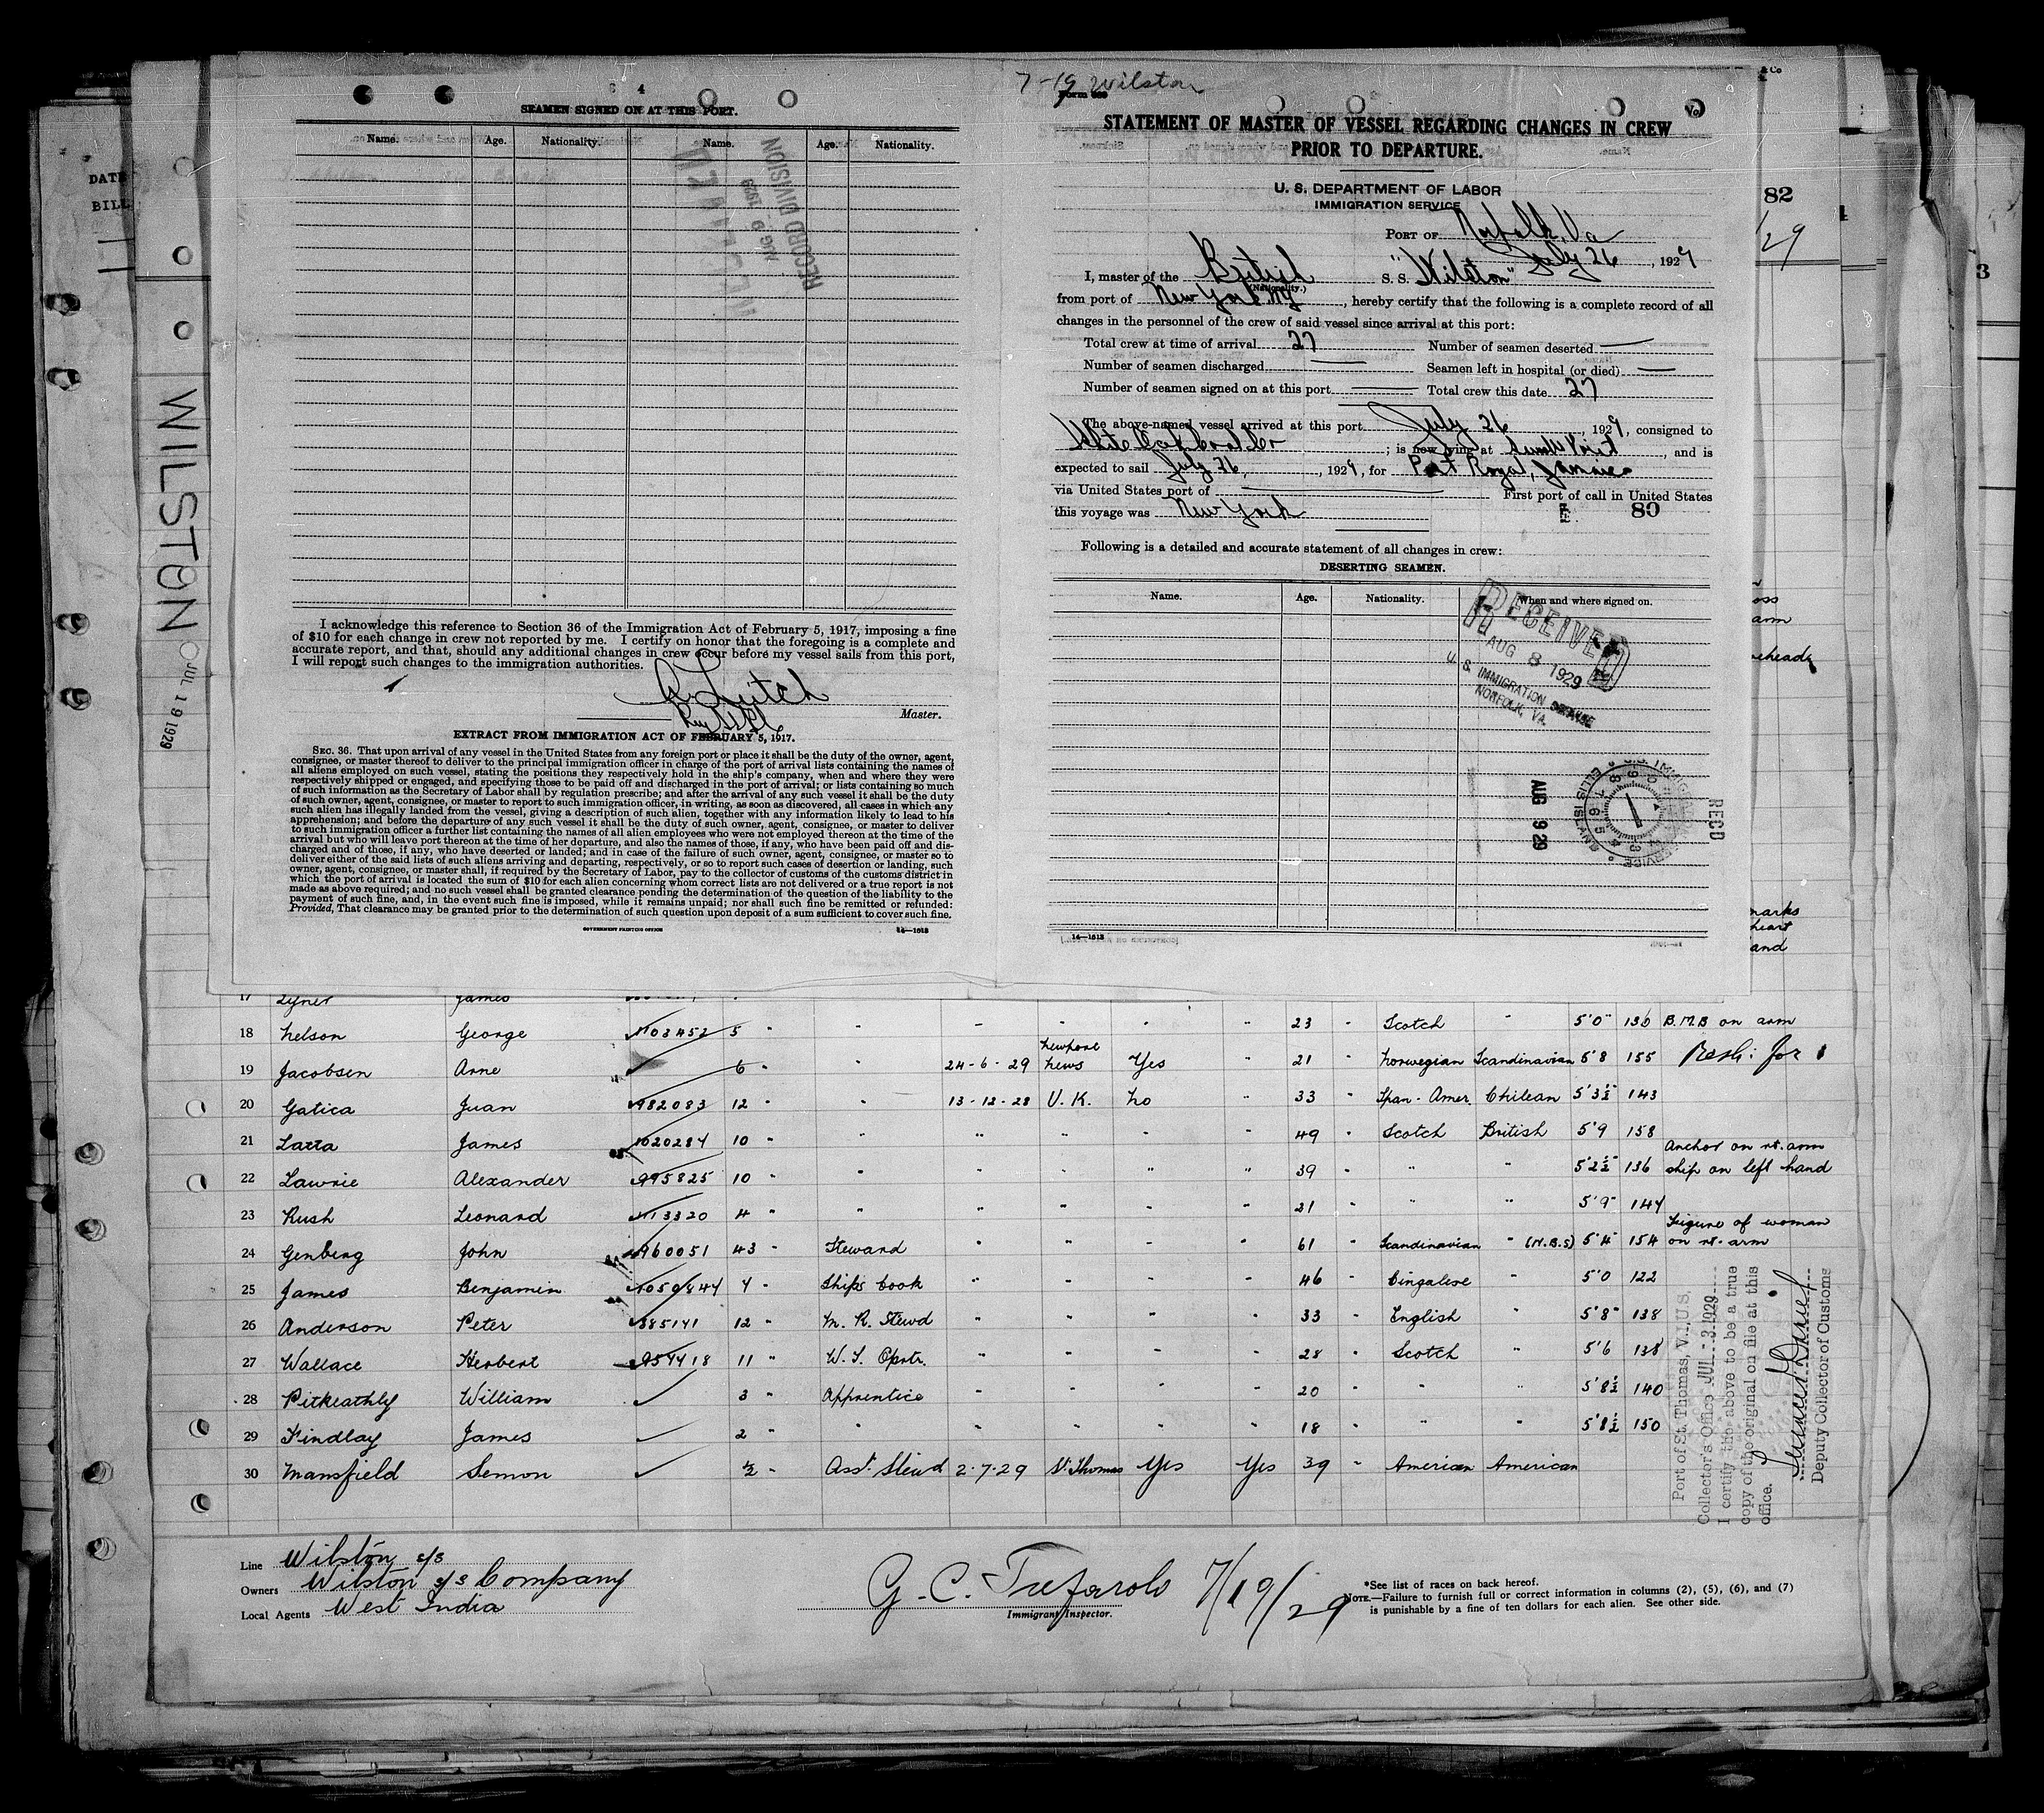 4
SEAMEN SIGNED ON AT THIS PORT.
Name. Age. Nationality. Name. Age. Nationality.
RECORD DIVISION
AUG 9 1929
I acknowledge this reference to Section 36 of the Immigration Act of February 5, 1917, imposing a fine
of $10 for each change in crew not reported by me. I certify on honor that the foregoing is a complete and
accurate report, and that, should any additional changes in crew occur before my vessel sails from this port,
I will report such changes to the immigration authorities.
Leitch
Master.
EXTRACT FROM IMMIGRATION ACT OF FEBRUARY 5, 1917.
SEC. 36. That upon arrival of any vessel in the United States from any foreign port or place it shall be the duty of the owner, agent,
consignee, or master thereof to deliver to the principal immigration officer in charge of the port of arrival lists containing the names of
all aliens employed on such vessel, stating the positions they respectively hold in the ship's company, when and where they were
respectively shipped or engaged, and specifying those to be paid off and discharged in the port of arrival; or lists containing so much
of such information as the Secretary of Labor shall by regulation prescribe; and after the arrival of any such vessel it shall be the duty
of such owner, agent, consignee, or master to report to such immigration officer, in writing, as soon as discovered, all cases in which any
such alien has illegally landed from the vessel, giving a description of such alien, together with any information likely to lead to his
apprehension; and before the departure of any such vessel it shall be the duty of such owner, agent, consignee, or master to deliver
to such immigration officer a further list containing the names of all alien employees who were not employed thereon at the time of the
arrival but who will leave port thereon at the time of her departure, and also the names of those, if any, who have been paid off and dis-
charged and of those, if any, who have deserted or landed; and in case of the failure of such owner, agent, consignee, or master so to
deliver either of the said lists of such aliens arriving and departing, respectively, or so to report such cases of desertion or landing, such
owner, agent, consignee, or master shall, if required by the Secretary of Labor, pay to the collector of customs of the customs district in
which the port of arrival is located the sum of $10 for each alien concerning whom correct lists are not delivered or a true report is not
made as above required; and no such vessel shall be granted clearance pending the determination of the question of the liability to the
payment of such fine, and, in the event such fine is imposed, while it remains unpaid; nor shall such fine be remitted or refunded:
Provided, That clearance may be granted prior to the determination of such question upon deposit of a sum sufficient to cover such fine.
GOVERNMENT PRINTING OFFICE 14—1613
7-19 Wilston
STATEMENT OF MASTER OF VESSEL REGARDING CHANGES IN CREW
PRIOR TO DEPARTURE.
U. S. DEPARTMENT OF LABOR
IMMIGRATION SERVICE
PORT OF Norfolk, Va
July 26, 1929
I, master of the British S. S. "Wilston"
(Nationality.)
from port of New York, NY, hereby certify that the following is a complete record of all
changes in the personnel of the crew of said vessel since arrival at this port:
Total crew at time of arrival 27 Number of seamen deserted —
Number of seamen discharged — Seamen left in hospital (or died) —
Number of seamen signed on at this port — Total crew this date 27
The above-named vessel arrived at this port July 26, 1929, consigned to
White Oak Coal Co; is now lying at Sewells Point, and is
expected to sail July 26, 1929, for Port Royal, Jamaica
via United States port of — First port of call in United States
this voyage was New York 80
Following is a detailed and accurate statement of all changes in crew:
DESERTING SEAMEN.
Name. Age. Nationality. When and where signed on.
RECEIVED
AUG 8 1929
U. S. IMMIGRATION SERVICE
NORFOLK, VA.
AUG 9 29
REC'D
14—1613
DATE
BILL
WILSTON JUL 19 1929
82
29
3
oss
arm
marks
heart
and
17 James
18 Nelson George 1103452 5 " " — " " " 23 " Scotch " 5'0" 136 B.M.B on arm
19 Jacobsen Arne 6 " " 24-6-29 Newport News Yes " 21 " Norwegian Scandinavian 5'8 155
20 Gatica Juan 982083 12 " " 13-12-28 U.K. No " 33 " Span-Amer. Chilean 5'3½" 143
21 Latta James 1020284 10 " " " " " " 49 " Scotch British 5'9 158
22 Lawrie Alexander 995825 10 " " " " " " 39 " " " 5'2½" 136 Anchor on rt. arm ship on left hand
23 Rush Leonard 1113320 4 " " " " " " 21 " " " 5'9" 144
24 Genberg John 960051 43 " Steward " " " " 61 " Scandinavian " (N.B.S) 5'4" 154 Figure of woman on rt. arm
25 James Benjamin 1050844 4 " Ships Cook " " " " 46 " Cingalese " 5'0 122
26 Anderson Peter 885141 12 " M. R. Stewd " " " " 33 " English " 5'8" 138
27 Wallace Herbert 954418 11 " W. T. Oprtr. " " " " 28 " Scotch " 5'6 138
28 Pitkeathly William 3 " Apprentice " " " " 20 " " " 5'8½ 140
29 Findlay James 2 " " " " " " 18 " " " 5'8½ 150
30 Mansfield Semon ½ " Asst. Stewd 2-7-29 St. Thomas Yes Yes 39 " American American
Port of St. Thomas, V.I., U.S.
Collector's Office JUL -3 1929
I certify the above to be a true
copy of the original on file at this
office.
Deputy Collector of Customs
Line Wilston s/s
Owners Wilston s/s Company
Local Agents West India
G. C. 7/19/29
Immigrant Inspector.
*See list of races on back hereof.
NOTE.—Failure to furnish full or correct information in columns (2), (5), (6), and (7)
is punishable by a fine of ten dollars for each alien. See other side.